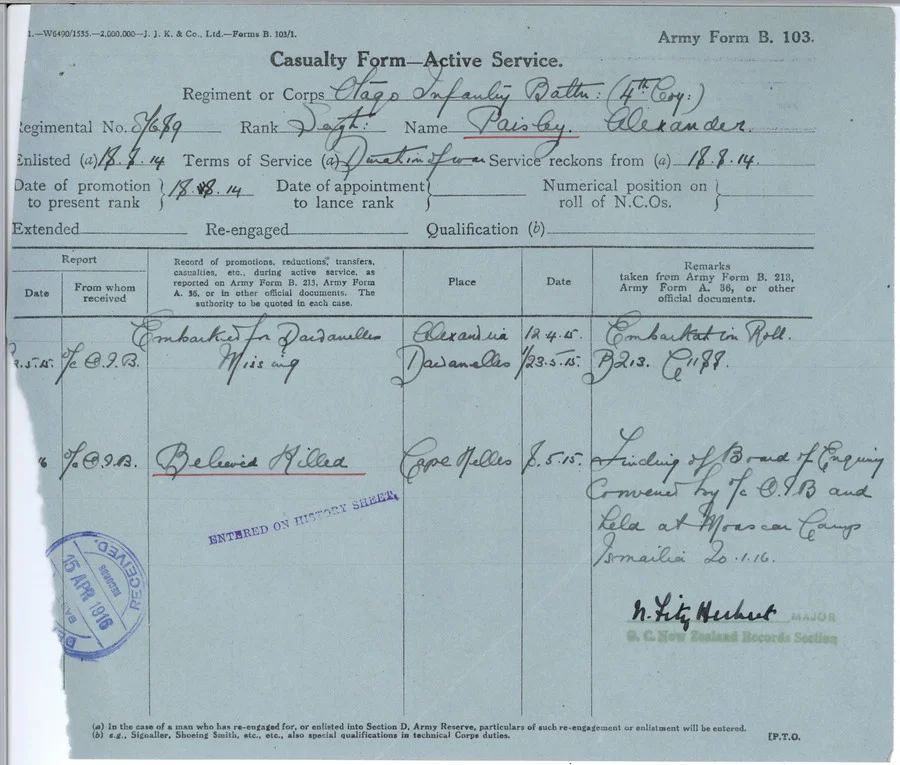 1.—W6490/1535.—2,000,000—J. J. K. & Co., Ltd.—Forms B. 103/1.
Army Form B. 103.
Casualty Form—Active Service.
Regiment or Corps Otago Infantry Battn: (4th Coy:)
Regimental No. 8/689 Rank Sergt: Name Paisley. Alexander.
Enlisted (a) 18.8.14 Terms of Service (a) Duration of war Service reckons from (a) 18.8.14.
Date of promotion to present rank } 18.8.14 Date of appointment to lance rank } Numerical position on roll of N.C.Os. }
Extended Re-engaged Qualification (b)
Report
Date
From whom received
Record of promotions, reductions, transfers,
casualties, etc., during active service, as
reported on Army Form B. 213, Army Form
A. 36, or in other official documents. The
authority to be quoted in each case.
Place
Date
Remarks
taken from Army Form B. 213,
Army Form A. 36, or other
official documents.
Embarked for Dardanelles Alexandria 12.4.15 Embarkation Roll.
.5.15. O/c O.I.B. Missing Dardanelles 23.5.15. B213. C1188.
6 O/c O.I.B. Believed Killed Cape Helles 8.5.15. Finding of Board of Enquiry
Convened by O/c O.I.B and
held at Moascar Camp
Ismailia 20.1.16.
ENTERED ON HISTORY SHEET.
RECEIVED.
RECORDS
15 APR 1916
N. FitzHerbert MAJOR
O. C. New Zealand Records Section
(a) In the case of a man who has re-engaged for, or enlisted into Section D, Army Reserve, particulars of such re-engagement or enlistment will be entered.
(b) e.g., Signaller, Shoeing Smith, etc., etc., also special qualifications in technical Corps duties.
[P.T.O.